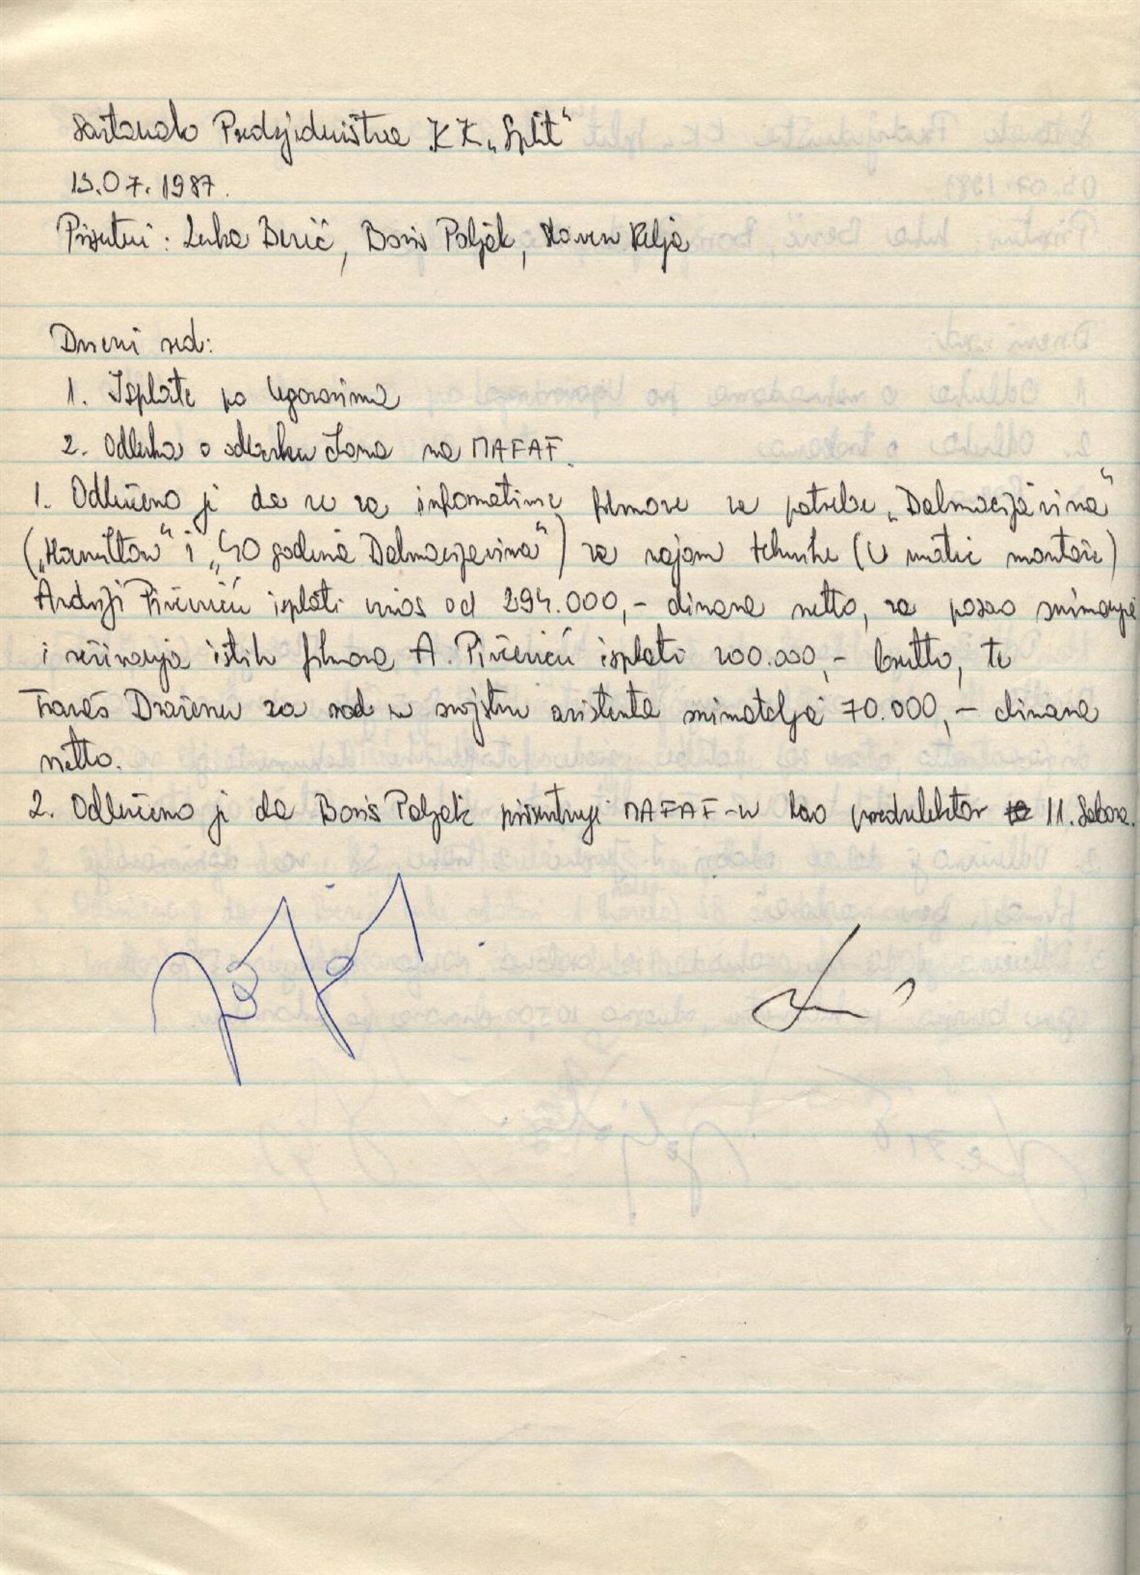 Sastanak Predsjedništva KK „Split“
13.07.1987.
Prisutni: Luka Berić, Boris Poljak, Relja
Dnevni red:
1. Isplate po Ugovorima
2. Odluka o odlasku na MAFAF.
1. Odlučeno je da se za informativne filmove za potrebe „Dalmacijavina“
(„Hamilton“ i „40 godina Dalmacijavina“) za najam tehnike (U matic montaže)
Andriji Pivčeviću isplati iznos od 294.000,- dinara netto, za posao snimanja
i režiranja istih filmova A. Pivčeviću isplati 200.000,- brutto, te
Draženu za rad u svojstvu asistenta snimatelja 70.000,- dinara
netto.
2. Odlučeno je da Boris Poljak prisustvuje MAFAF-u kao predselektor 11. Sabora.